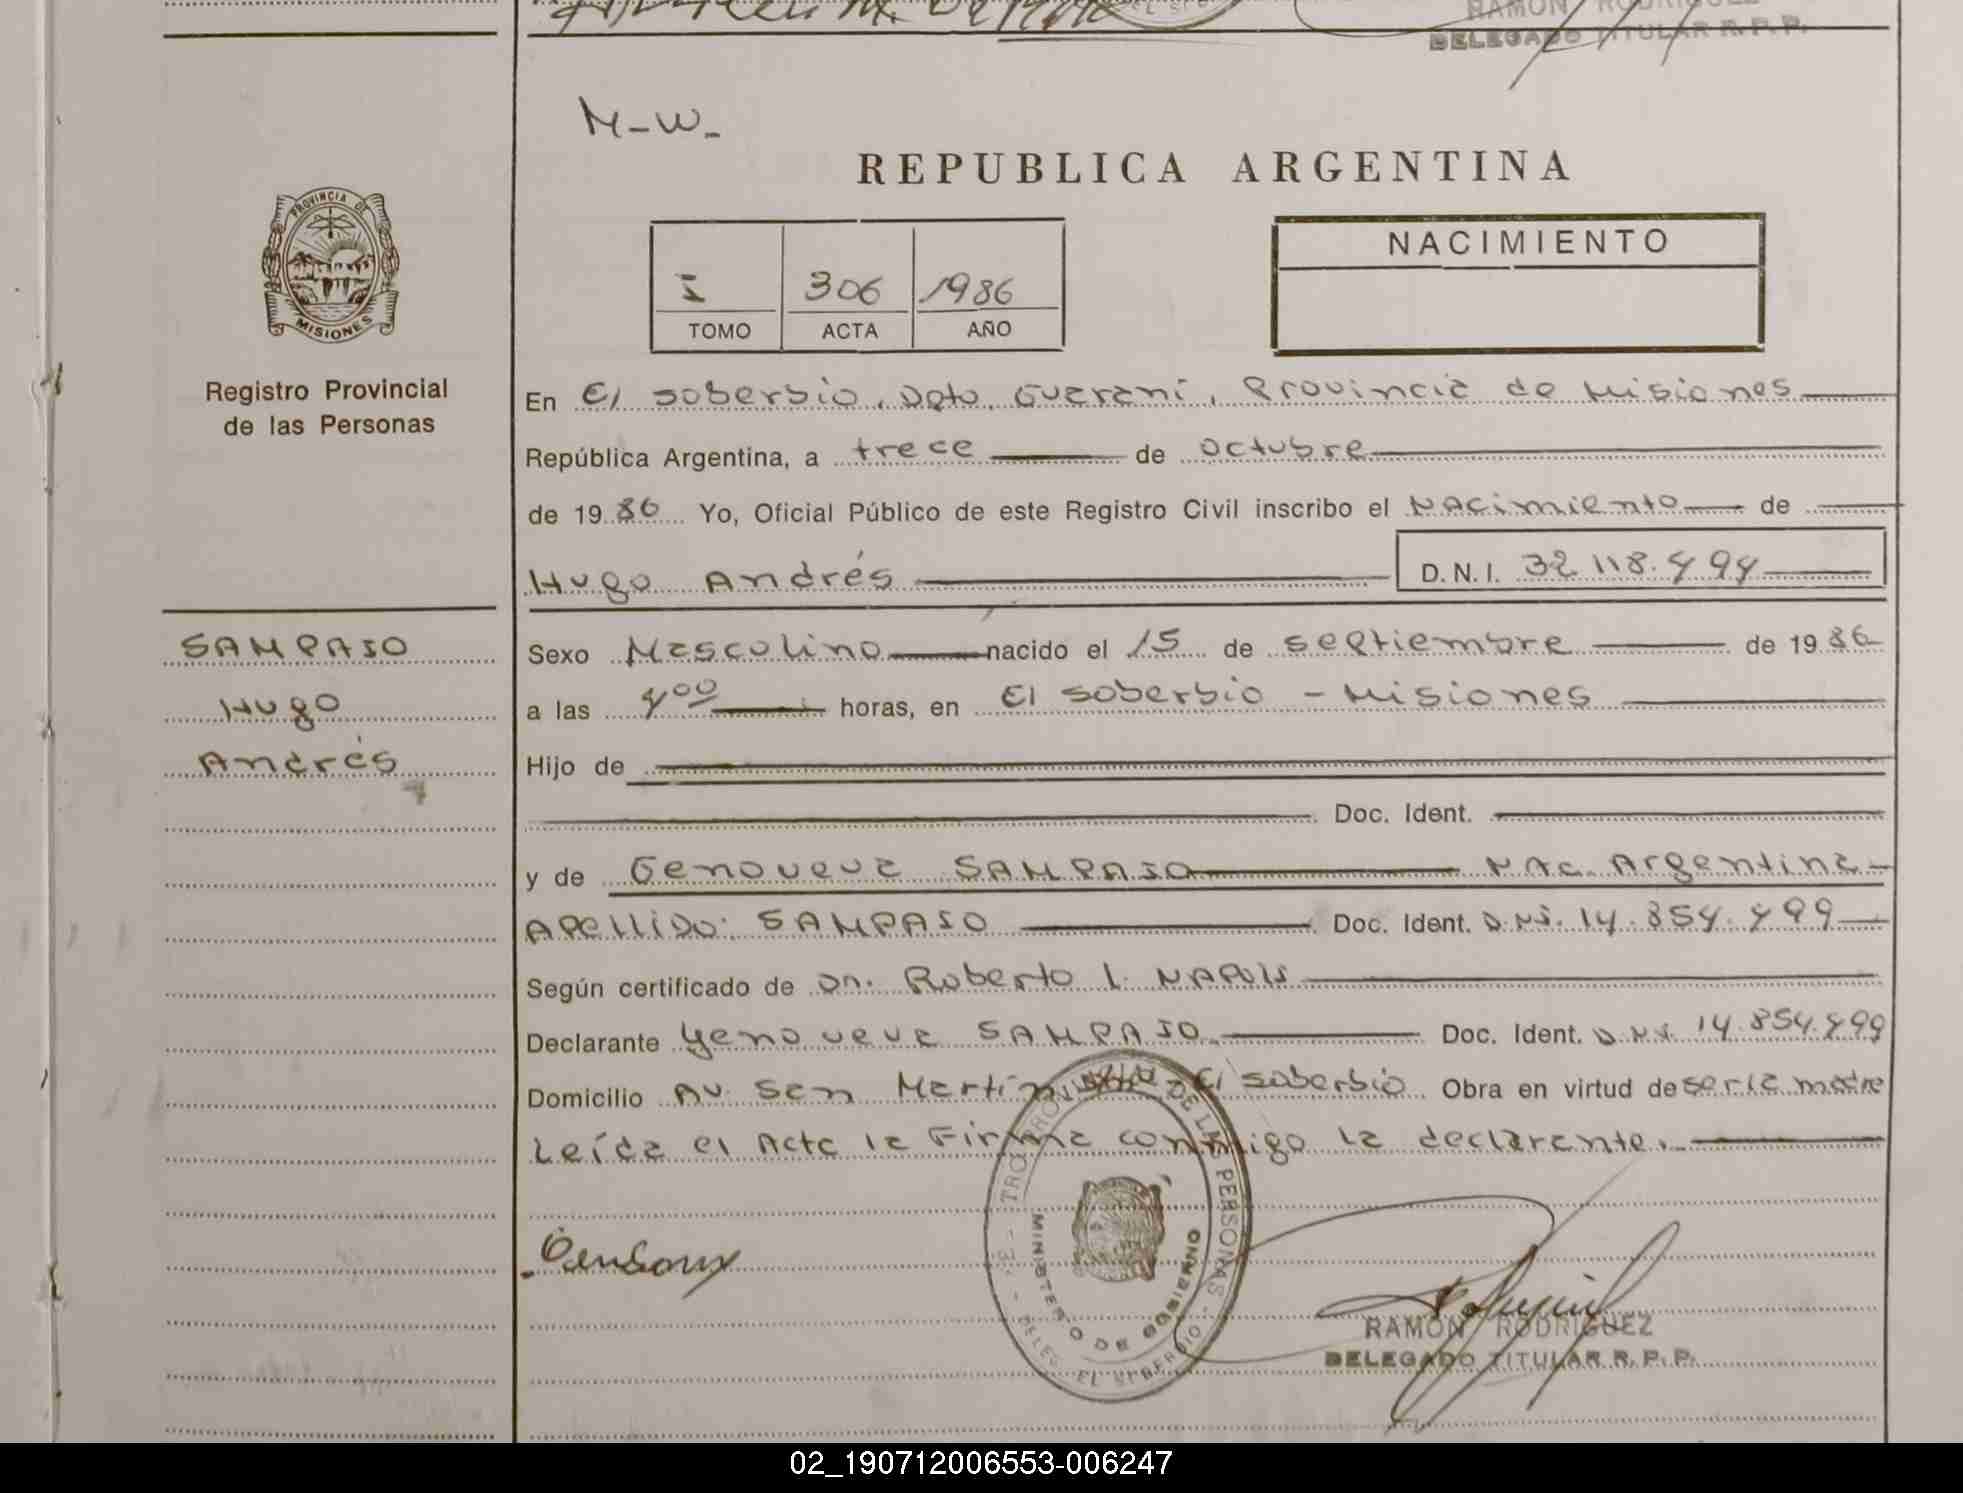 RAMON RODRIGUEZ
DELEGADO TITULAR R.P.P.
M-W-
REPUBLICA ARGENTINA
PROVINCIA DE
MISIONES
Registro Provincial
de las Personas
I 306 1986
TOMO ACTA AÑO
NACIMIENTO
En El soberbio, Dpto. Guaraní, Provincia de Misiones
República Argentina, a trece de octubre
de 1986 Yo, Oficial Público de este Registro Civil inscribo el Nacimiento de
Hugo Andrés D.N.I. 32.118.494
SAMPAIO
Hugo
Andrés
Sexo Masculino nacido el 15 de septiembre de 1986
a las 4 00 horas, en El soberbio - Misiones
Hijo de
Doc. Ident.
y de Genoveva SAMPAIO Nac. Argentina
APELLIDO: SAMPAIO Doc. Ident. D.N.I. 14.854.499
Según certificado de Dr. Roberto L. NAPOLI
Declarante Genoveva SAMPAIO. Doc. Ident. D.N.I. 14.854.499
Domicilio Av. San Martín El soberbio Obra en virtud de ser la madre
Leída el Acta la Firma conmigo la declarante.
DE LAS PERSONAS
MINISTERIO DE GOBIERNO
EL SOBERBIO
RAMON RODRIGUEZ
DELEGADO TITULAR R.P.P.
02_190712006553-006247